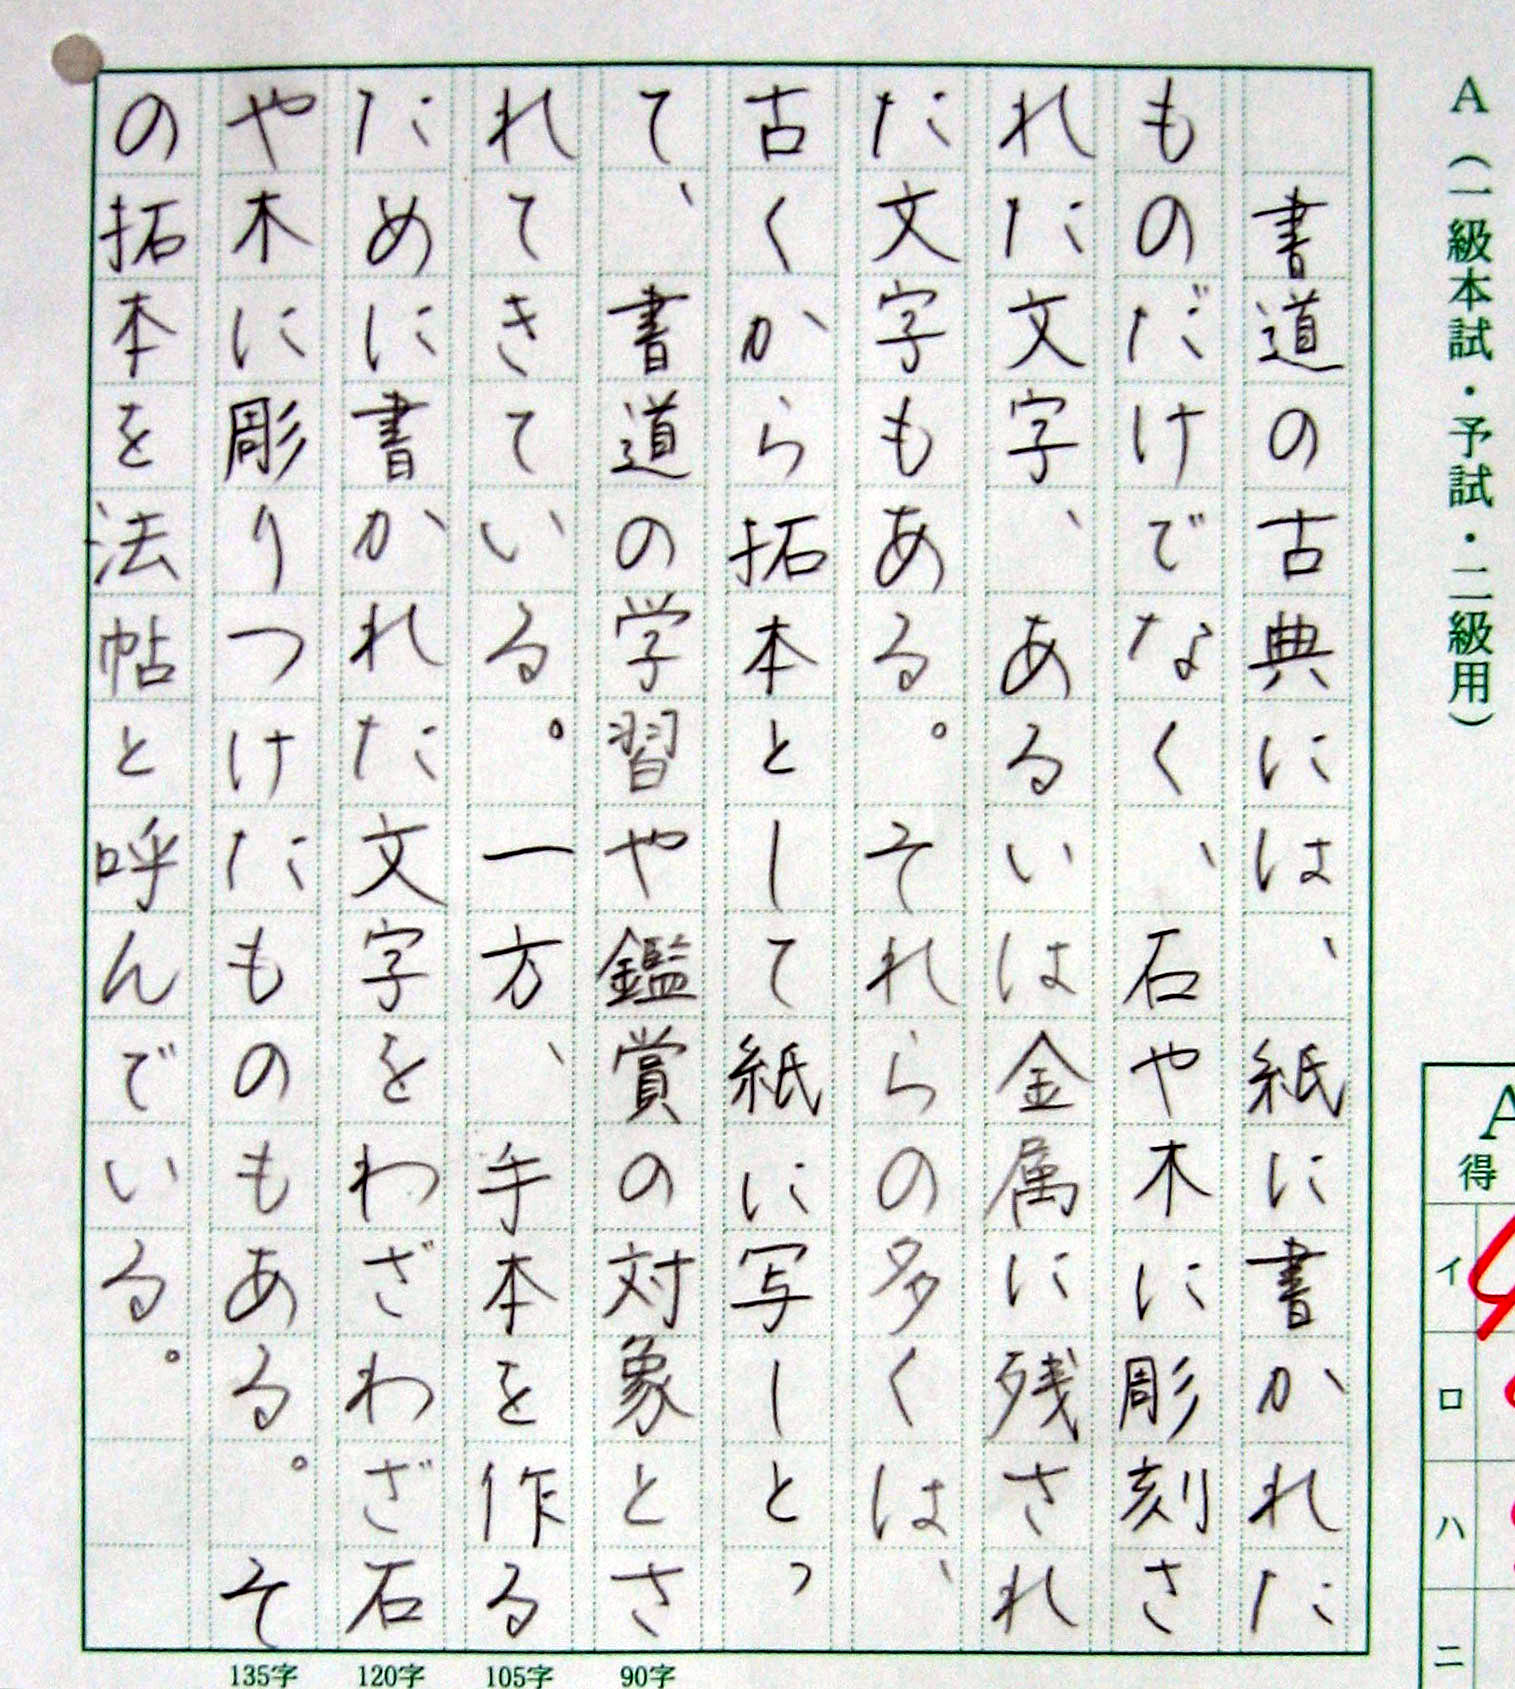 A（一級本試・予試・二級用）
書道の古典には、紙に書かれた
ものだけでなく、石や木に彫刻さ
れた文字、あるいは金属に残され
た文字もある。それらの多くは、
古くから拓本として紙に写しとっ
て、書道の学習や鑑賞の対象とさ
れてきている。一方、手本を作る
ために書かれた文字をわざわざ石
や木に彫りつけたものもある。そ
の拓本を法帖と呼んでいる。
90字
105字
120字
135字
A
得
イ
ロ
ハ
ニ